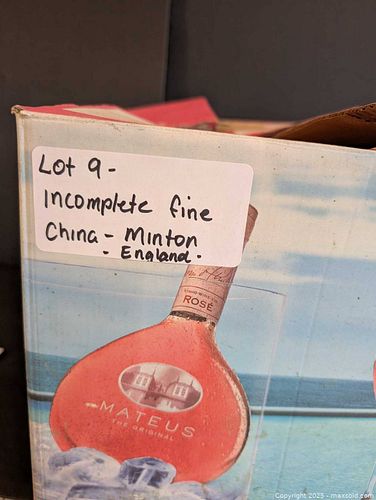 Lot 9 -
Incomplete fine
China - Minton
- England -
ROSÉ
MATEUS
THE ORIGINAL
Copyright 2025 - maxsold.com